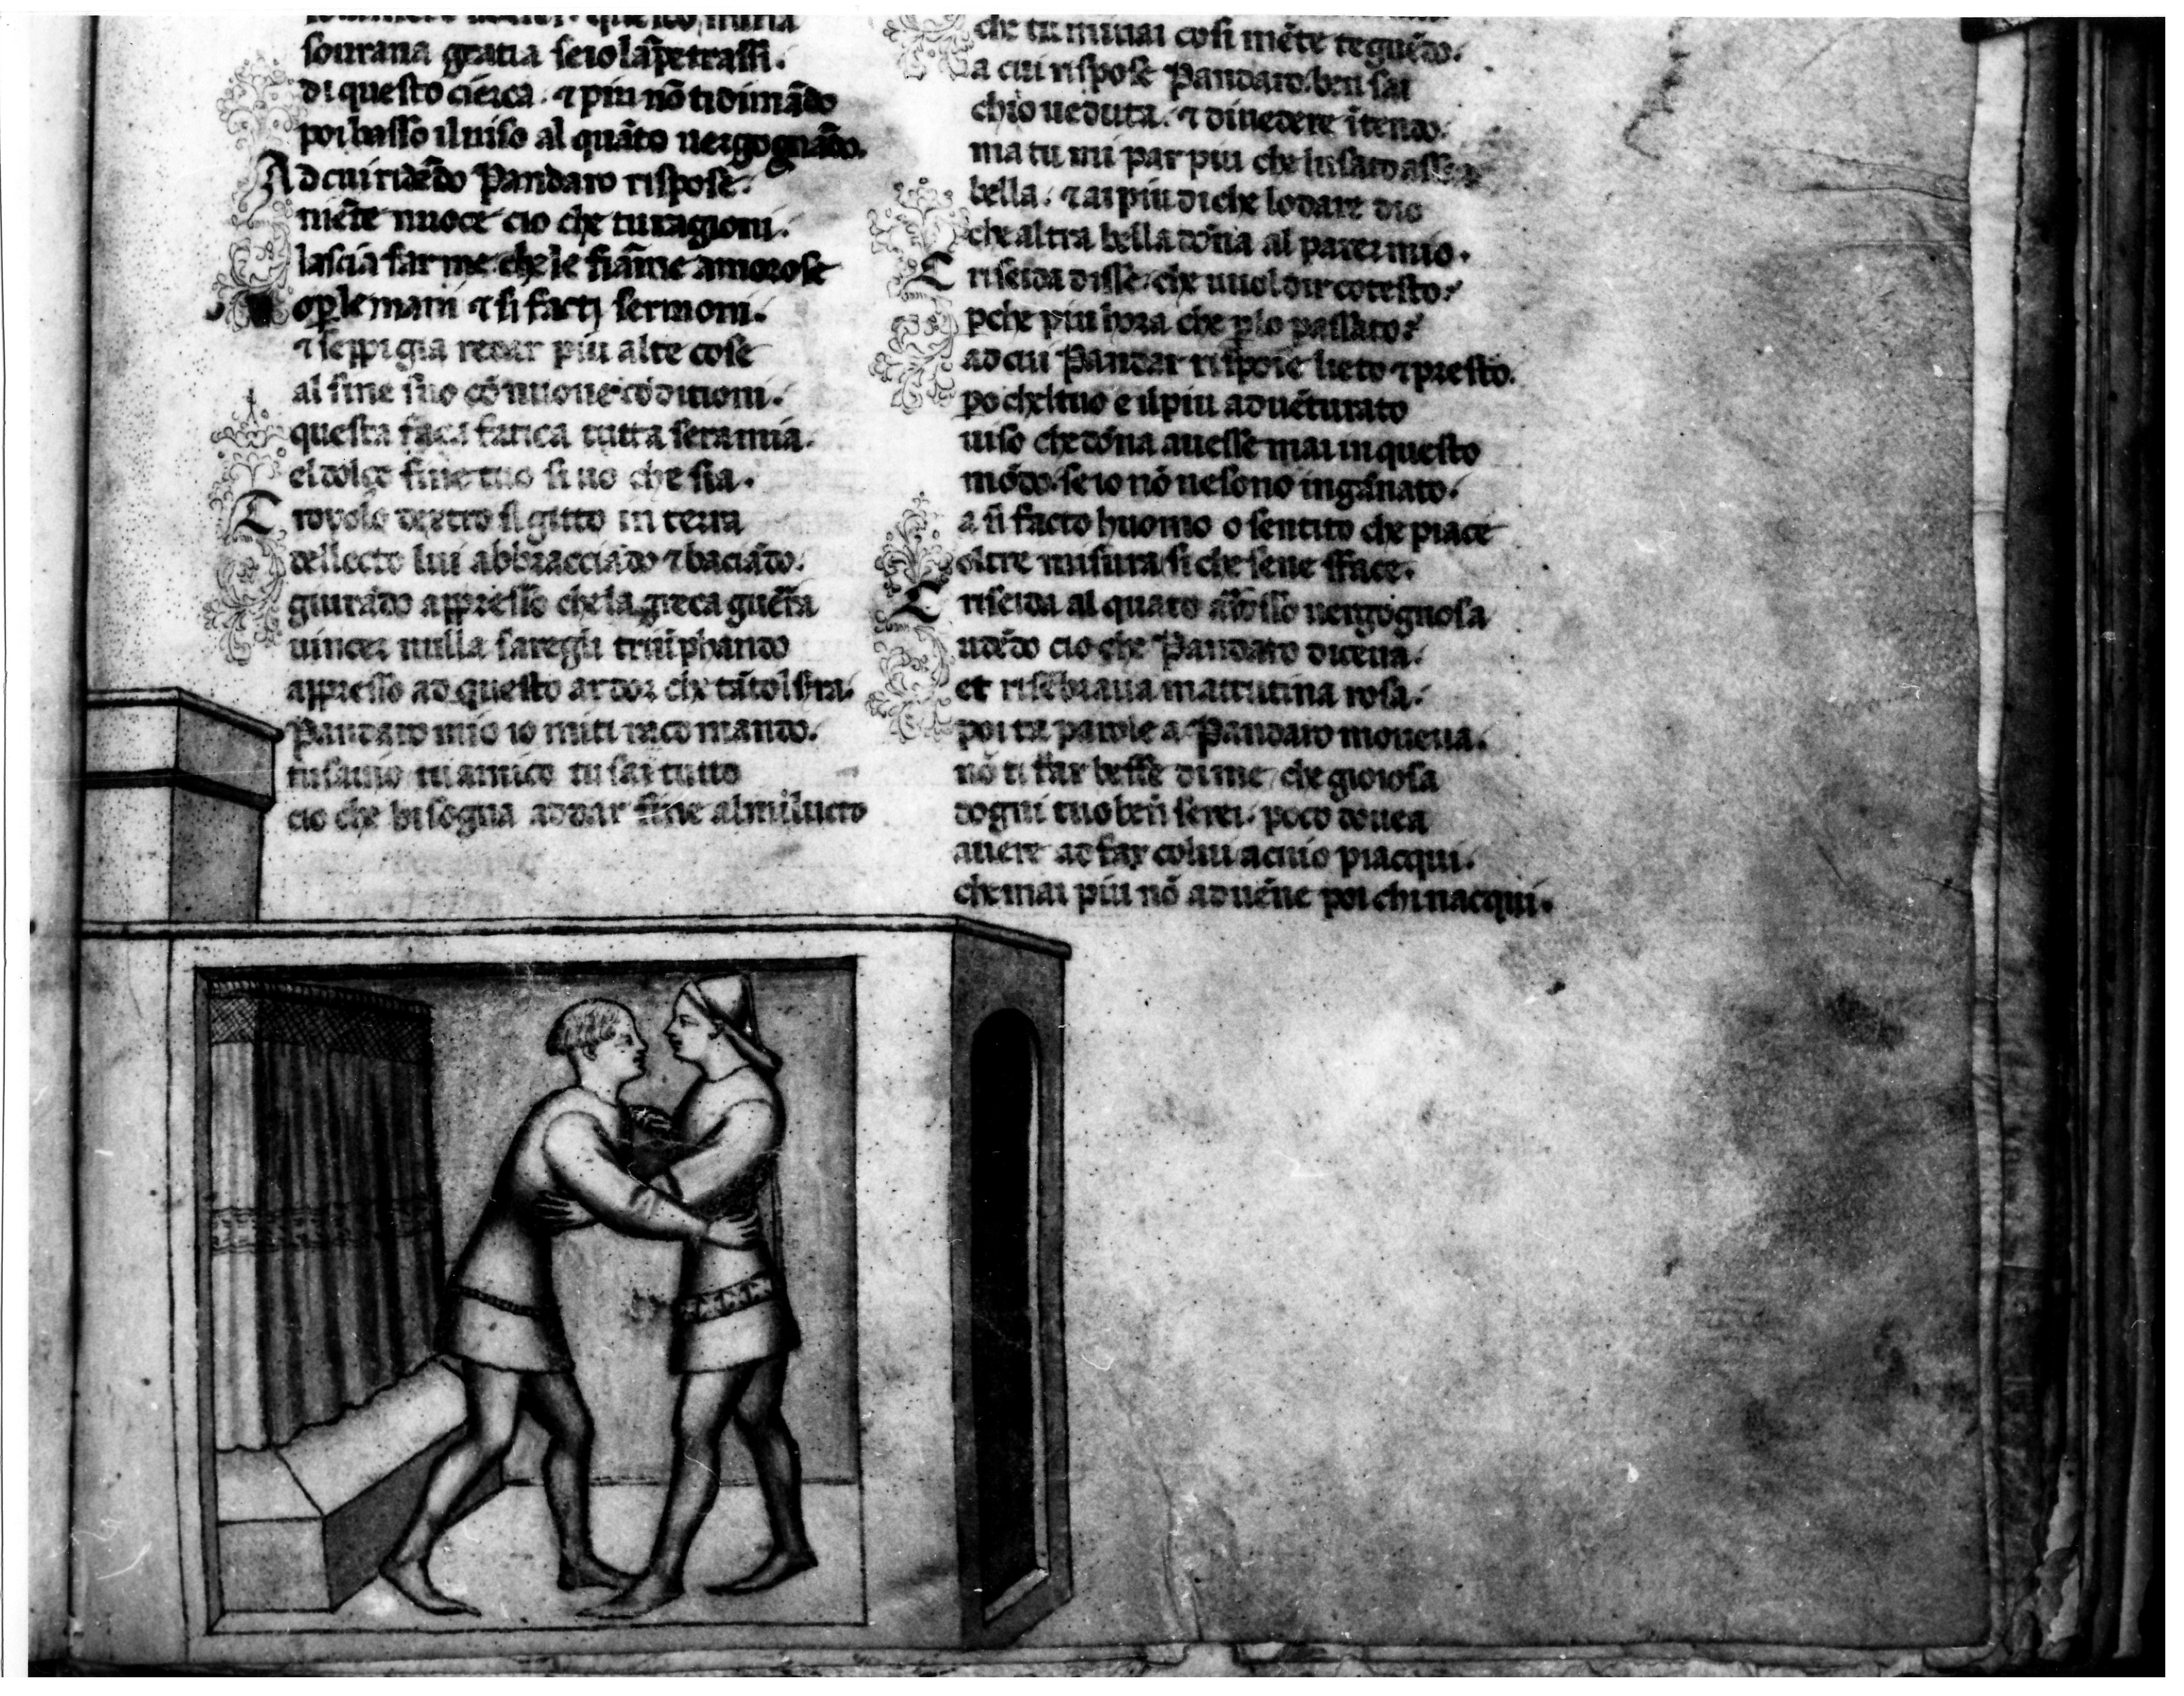 sourana gratia se io lāpetrassi.
di questo cierca. ⁊ piu nō ti dimādo
poi basso il uiso al quāto uergognādo.
Ad cui ridēdo Pandaro rispose.
niēte nuoce cio che tu ragioni.
lascia far me che le fiāme amorose
o ꝑ le mani ⁊ si facti sermoni.
⁊ seppi gia recar piu alte cose
al fine suo cō nuoue cōditioni.
questa fatica tutta sera mia.
el dolce fine tuo si uo che sia.
Troyolo dextro si gitto in terra
del lecto lui abbracciādo ⁊ baciādo.
giurādo appresso che la greca guerra
uincer nulla saregli triūphando
appresso ad questo ardor che tāto l
Pandaro mio io mi ti racomando.
tu sauio tu amico tu sai tutto
cio che bisogna ad dar fine al mi lucto
che tu mirai cosi mēte teguēdo.
a cui rispose Pandaro. ben sai
chio ueduta. ⁊ di uedere ītendo.
ma tu mi par piu che lusato assai
bella. ⁊ ai piu di che lodare dio
che altra bella dōna al parer mio.
Criseida disse. che uuol dir cotesto.
ꝑche piu hora che ꝑ lo passato.
ad cui Pandar rispose lieto ⁊ presto.
ꝑo chel tuo e il piu aduēturato
uiso che dōna auesse mai in questo
mōdo. se io nō ne sono ingānato.
a si facto huomo o sentito che piace
oltre misura si che sene sface.
Criseida al quāto arrosso uergognosa
udēdo cio che Pandaro diceua.
et risēbraua matutina rosa.
poi tai parole a Pandaro moueua.
nō ti far beffe di me, che gioiosa
dogni tuo ben serei. poco doueа
auere ad far colui a cui io piacqui.
che mai piu nō aduēne poi chi nacqui.